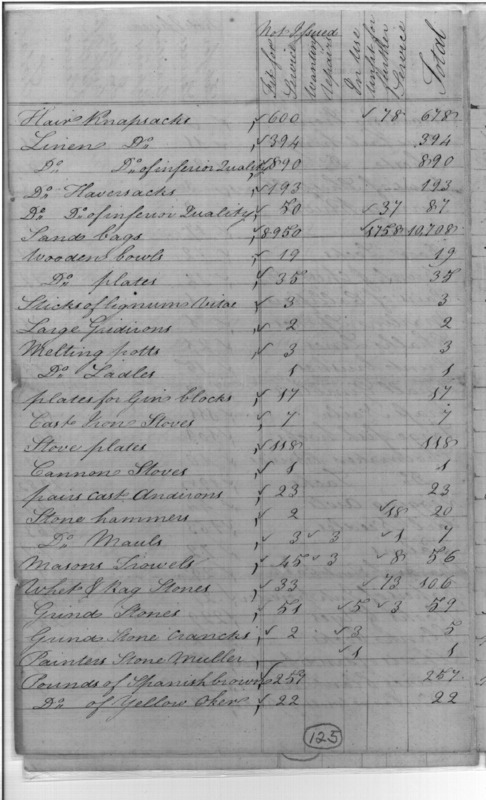 Not Issued
Fit for Service
Wanting Repairs
In use
unfit for further Service
Total
Hair Knapsacks 600 78 678
Linen Do. 394 394
Do. Do. of inferior Quality 890 890
Do. Haversacks 193 193
Do. Do. of inferior Quality 50 37 87
Sand bags 8950 1758 10,708
Wooden bowls 19 19
Do. plates 35 35
Sticks of lignum Vitae 3 3
Large Gridirons 2 2
Melting potts 3 3
Do. Ladles 1 1
plates for Gin blocks 17 17
Cast Iron Stoves 7 7
Stove plates 118 118
Cannon Stoves 1 1
pairs cast Andirons 23 23
Stone hammers 2 18 20
Do. Mauls 3 3 1 7
Masons Trowels 45 3 8 56
Whet & Rag Stones 33 73 106
Grind Stones 51 5 3 59
Grind Stone Crancks 2 3 5
Painters Stone Muller 1 1
Pounds of Spanish brown 257 257
Do. of Yellow Oker 22 22
125